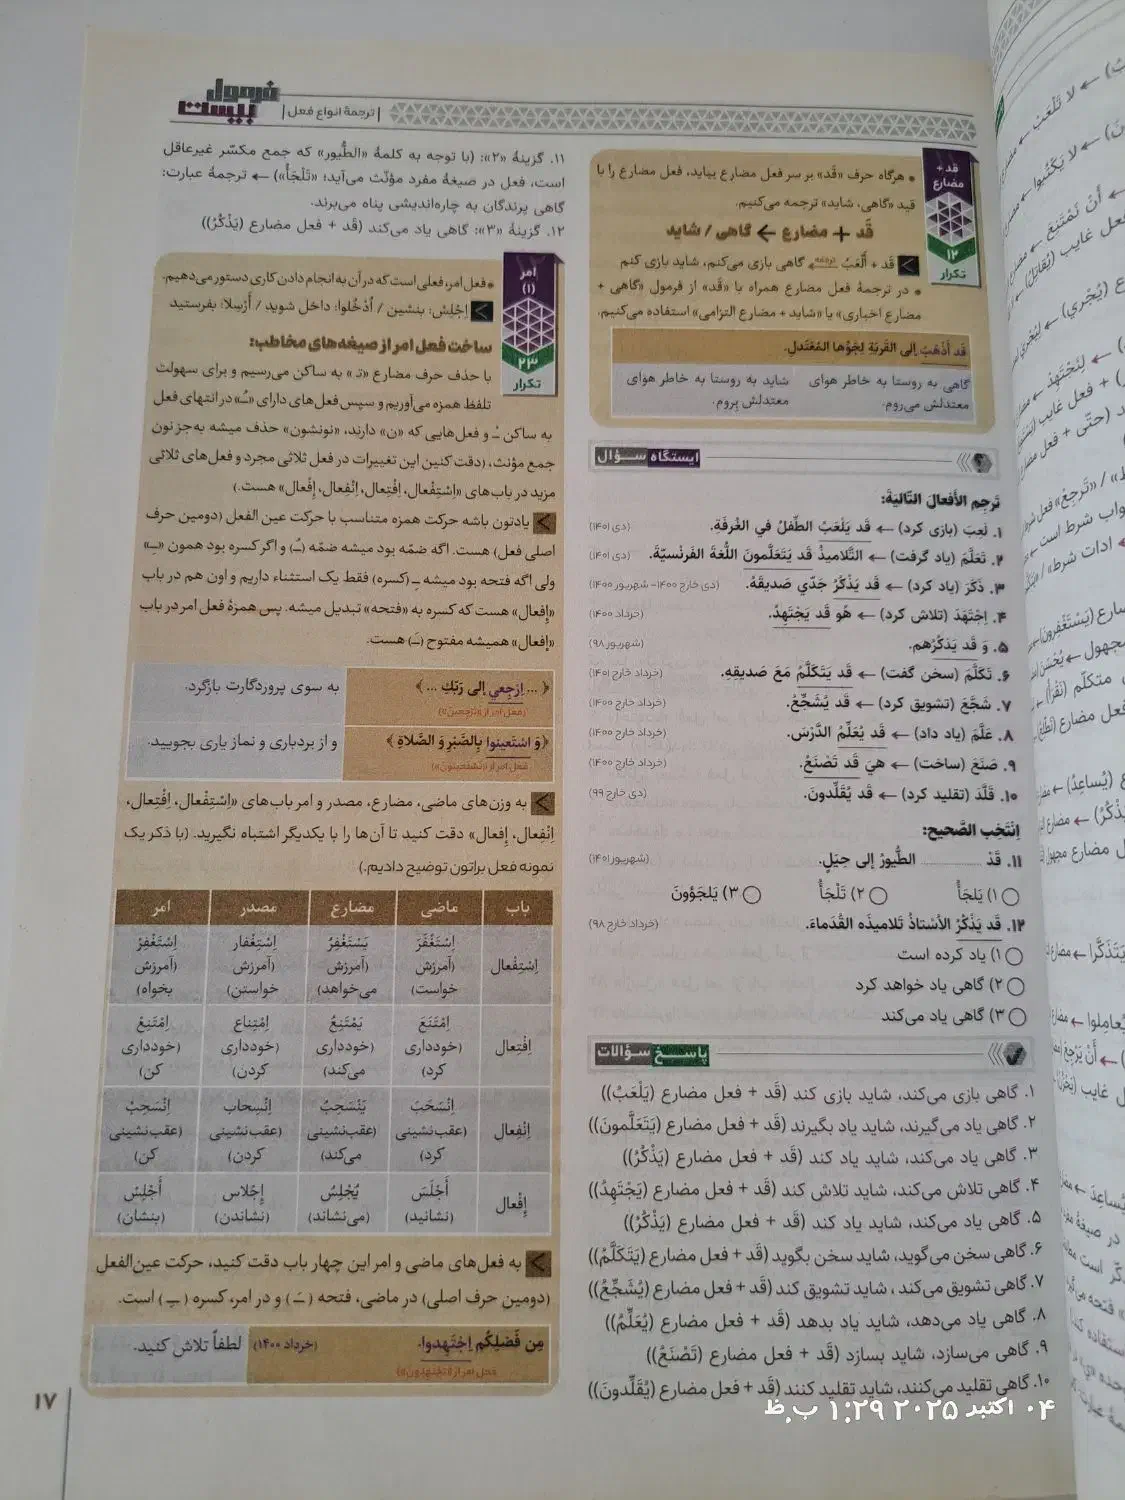 فرمول بیست
ترجمهٔ انواع فعل
قد + مضارع
۱۲
تکرار
هرگاه حرف «قَد» بر سر فعل مضارع بیاید، فعل مضارع را با
قید «گاهی، شاید» ترجمه می‌کنیم.
قَد + مضارع ← گاهی / شاید
قَد + أَلْعَبُ ترجمه گاهی بازی می‌کنم، شاید بازی کنم
در ترجمهٔ فعل مضارع همراه با «قَد» از فرمول «گاهی +
مضارع اخباری» یا «شاید + مضارع التزامی» استفاده می‌کنیم.
قَد أَذهَبُ إلَى القَریَةِ لِجَوِّها المُعتَدِلِ.
گاهی به روستا به خاطر هوای معتدلش می‌روم.
شاید به روستا به خاطر هوای معتدلش بِروم.
ایستگاه سؤال
تَرجِمِ الأَفعالَ التّالیَةَ:
۱. لَعِبَ (بازی کرد) ← قَد یَلْعَبُ الطِّفلُ في الغُرفَةِ. (دی ۱۴۰۱)
۲. تَعَلَّمَ (یاد گرفت) ← التَّلامیذُ قَد یَتَعَلَّمونَ اللُّغَةَ الفَرَنْسیّةَ. (دی ۱۴۰۱)
۳. ذَکَرَ (یاد کرد) ← قَد یَذْکُرُ جَدّي صَدیقَهُ. (دی خارج ۱۴۰۰- شهریور ۱۴۰۰)
۴. اِجْتَهَدَ (تلاش کرد) ← هُو قَد یَجْتَهِدُ. (خرداد ۱۴۰۰)
۵. وَ قَد یَذکُرُهم. (شهریور ۹۸)
۶. تَکَلَّمَ (سخن گفت) ← قَد یَتَکَلَّمُ مَعَ صَدیقِهِ. (خرداد خارج ۱۴۰۱)
۷. شَجَّعَ (تشویق کرد) ← قَد یُشَجِّعُ. (خرداد خارج ۱۴۰۰)
۸. عَلَّمَ (یاد داد) ← قَد یُعَلِّمُ الدَّرْسَ. (خرداد خارج ۱۴۰۰)
۹. صَنَعَ (ساخت) ← هِيَ قَد تَصْنَعُ. (خرداد خارج ۱۴۰۰)
۱۰. قَلَّدَ (تقلید کرد) ← قَد یُقَلِّدونَ. (دی خارج ۹۹)
اِنْتَخِبِ الصَّحیح:
۱۱. قَدْ ............ الطُّیورُ إلی حِیَلٍ. (شهریور ۱۴۰۱)
۱) یَلجَأُ ۲) تَلْجَأُ ۳) یَلجَؤونَ
۱۲. قَد یَذْکُرُ الأُسْتاذُ تَلامیذَه القُدَماءَ. (خرداد خارج ۹۸)
۱) یاد کرده است
۲) گاهی یاد خواهد کرد
۳) گاهی یاد می‌کند
پاسخ سؤالات
۱. گاهی بازی می‌کند، شاید بازی کند (قَد + فعل مضارع (یَلْعَبُ))
۲. گاهی یاد می‌گیرند، شاید یاد بگیرند (قَد + فعل مضارع (یَتَعَلَّمونَ))
۳. گاهی یاد می‌کند، شاید یاد کند (قَد + فعل مضارع (یَذْکُرُ))
۴. گاهی تلاش می‌کند، شاید تلاش کند (قَد + فعل مضارع (یَجْتَهِدُ))
۵. گاهی یاد می‌کند، شاید یاد کند (قَد + فعل مضارع (یَذْکُرُ))
۶. گاهی سخن می‌گوید، شاید سخن بگوید (قَد + فعل مضارع (یَتَکَلَّمُ))
۷. گاهی تشویق می‌کند، شاید تشویق کند (قَد + فعل مضارع (یُشَجِّعُ))
۸. گاهی یاد می‌دهد، شاید یاد بدهد (قَد + فعل مضارع (یُعَلِّمُ))
۹. گاهی می‌سازد، شاید بسازد (قَد + فعل مضارع (تَصْنَعُ))
۱۰. گاهی تقلید می‌کنند، شاید تقلید کنند (قَد + فعل مضارع (یُقَلِّدونَ))
۱۱. گزینهٔ «۲»: (با توجه به کلمهٔ «الطُّیور» که جمع مکسّر غیرعاقل
است، فعل در صیغهٔ مفرد مؤنّث می‌آید؛ «تَلْجَأُ») ← ترجمهٔ عبارت:
گاهی پرندگان به چاره‌اندیشی پناه می‌برند.
۱۲. گزینهٔ «۳»: گاهی یاد می‌کند (قَد + فعل مضارع (یَذْکُرُ))
امر (۱)
۲۳
تکرار
فعل امر، فعلی است که در آن به انجام دادن کاری دستور می‌دهیم.
اِجْلِسْ: بنشین / اُدْخُلوا: داخل شوید / أَرْسِلا: بفرستید
ساخت فعل امر از صیغه‌های مخاطب:
با حذف حرف مضارع «تـ» به ساکن می‌رسیم و برای سهولت
تلفظ همزه می‌آوریم و سپس فعل‌های دارای «ـُ» در انتهای فعل
به ساکن ـْ و فعل‌هایی که «ن» دارند، «نونشون» حذف میشه به‌جز نون
جمع مؤنث. (دقت کنین این تغییرات در فعل ثلاثی مجرد و فعل‌های ثلاثی
مزید در باب‌های «اِسْتِفْعال، اِفْتِعال، اِنْفِعال، إِفْعال» هست.)
یادتون باشه حرکت همزه متناسب با حرکت عین الفعل (دومین حرف
اصلی فعل) هست. اگه ضمّه بود میشه ضمّه (ـُ) و اگر کسره بود همون «ـِ»
ولی اگه فتحه بود میشه ـِ (کسره) فقط یک استثناء داریم و اون هم در باب
«إفعال» هست که کسره به «فتحه» تبدیل میشه. پس همزهٔ فعل امر در باب
«إفعال» همیشه مفتوح (ـَ) هست.
﴿... اِرْجِعي إلی رَبّكِ ...﴾ به سوی پروردگارت بازگرد.
(فعل امر از «تَرْجِعینَ»)
﴿وَ اسْتَعینوا بِالصَّبْرِ وَ الصَّلاةِ﴾ و از بردباری و نماز یاری بجویید.
(فعل امر از «تَسْتَعینونَ»)
به وزن‌های ماضی، مضارع، مصدر و امر باب‌های «اِسْتِفْعال، اِفْتِعال،
اِنْفِعال، إفعال» دقت کنید تا آن‌ها را با یکدیگر اشتباه نگیرید. (با ذکر یک
نمونه فعل براتون توضیح دادیم.)
باب ماضی مضارع مصدر امر
اِسْتِفْعال اِسْتَغْفَرَ (آمرزش خواست) یَسْتَغْفِرُ (آمرزش می‌خواهد) اِسْتِغْفار (آمرزش خواستن) اِسْتَغْفِرْ (آمرزش بخواه)
اِفْتِعال اِمْتَنَعَ (خودداری کرد) یَمْتَنِعُ (خودداری می‌کند) اِمْتِناع (خودداری کردن) اِمْتَنِعْ (خودداری کن)
اِنْفِعال اِنْسَحَبَ (عقب‌نشینی کرد) یَنْسَحِبُ (عقب‌نشینی می‌کند) اِنْسِحاب (عقب‌نشینی کردن) اِنْسَحِبْ (عقب‌نشینی کن)
إفْعال أَجْلَسَ (نشانید) یُجْلِسُ (می‌نشاند) إِجْلاس (نشاندن) أَجْلِسْ (بنشان)
به فعل‌های ماضی و امر این چهار باب دقت کنید، حرکت عین‌الفعل
(دومین حرف اصلی) در ماضی، فتحه (ـَ) و در امر، کسره (ـِ) است.
مِن فَضلِكُم اِجْتَهِدوا. (خرداد ۱۴۰۰) لطفاً تلاش کنید.
(فعل امر از «تَجْتَهِدونَ»)
۱۷
۰۴ اکتبر ۲۰۲۵ ۱:۲۹ ب.ظ